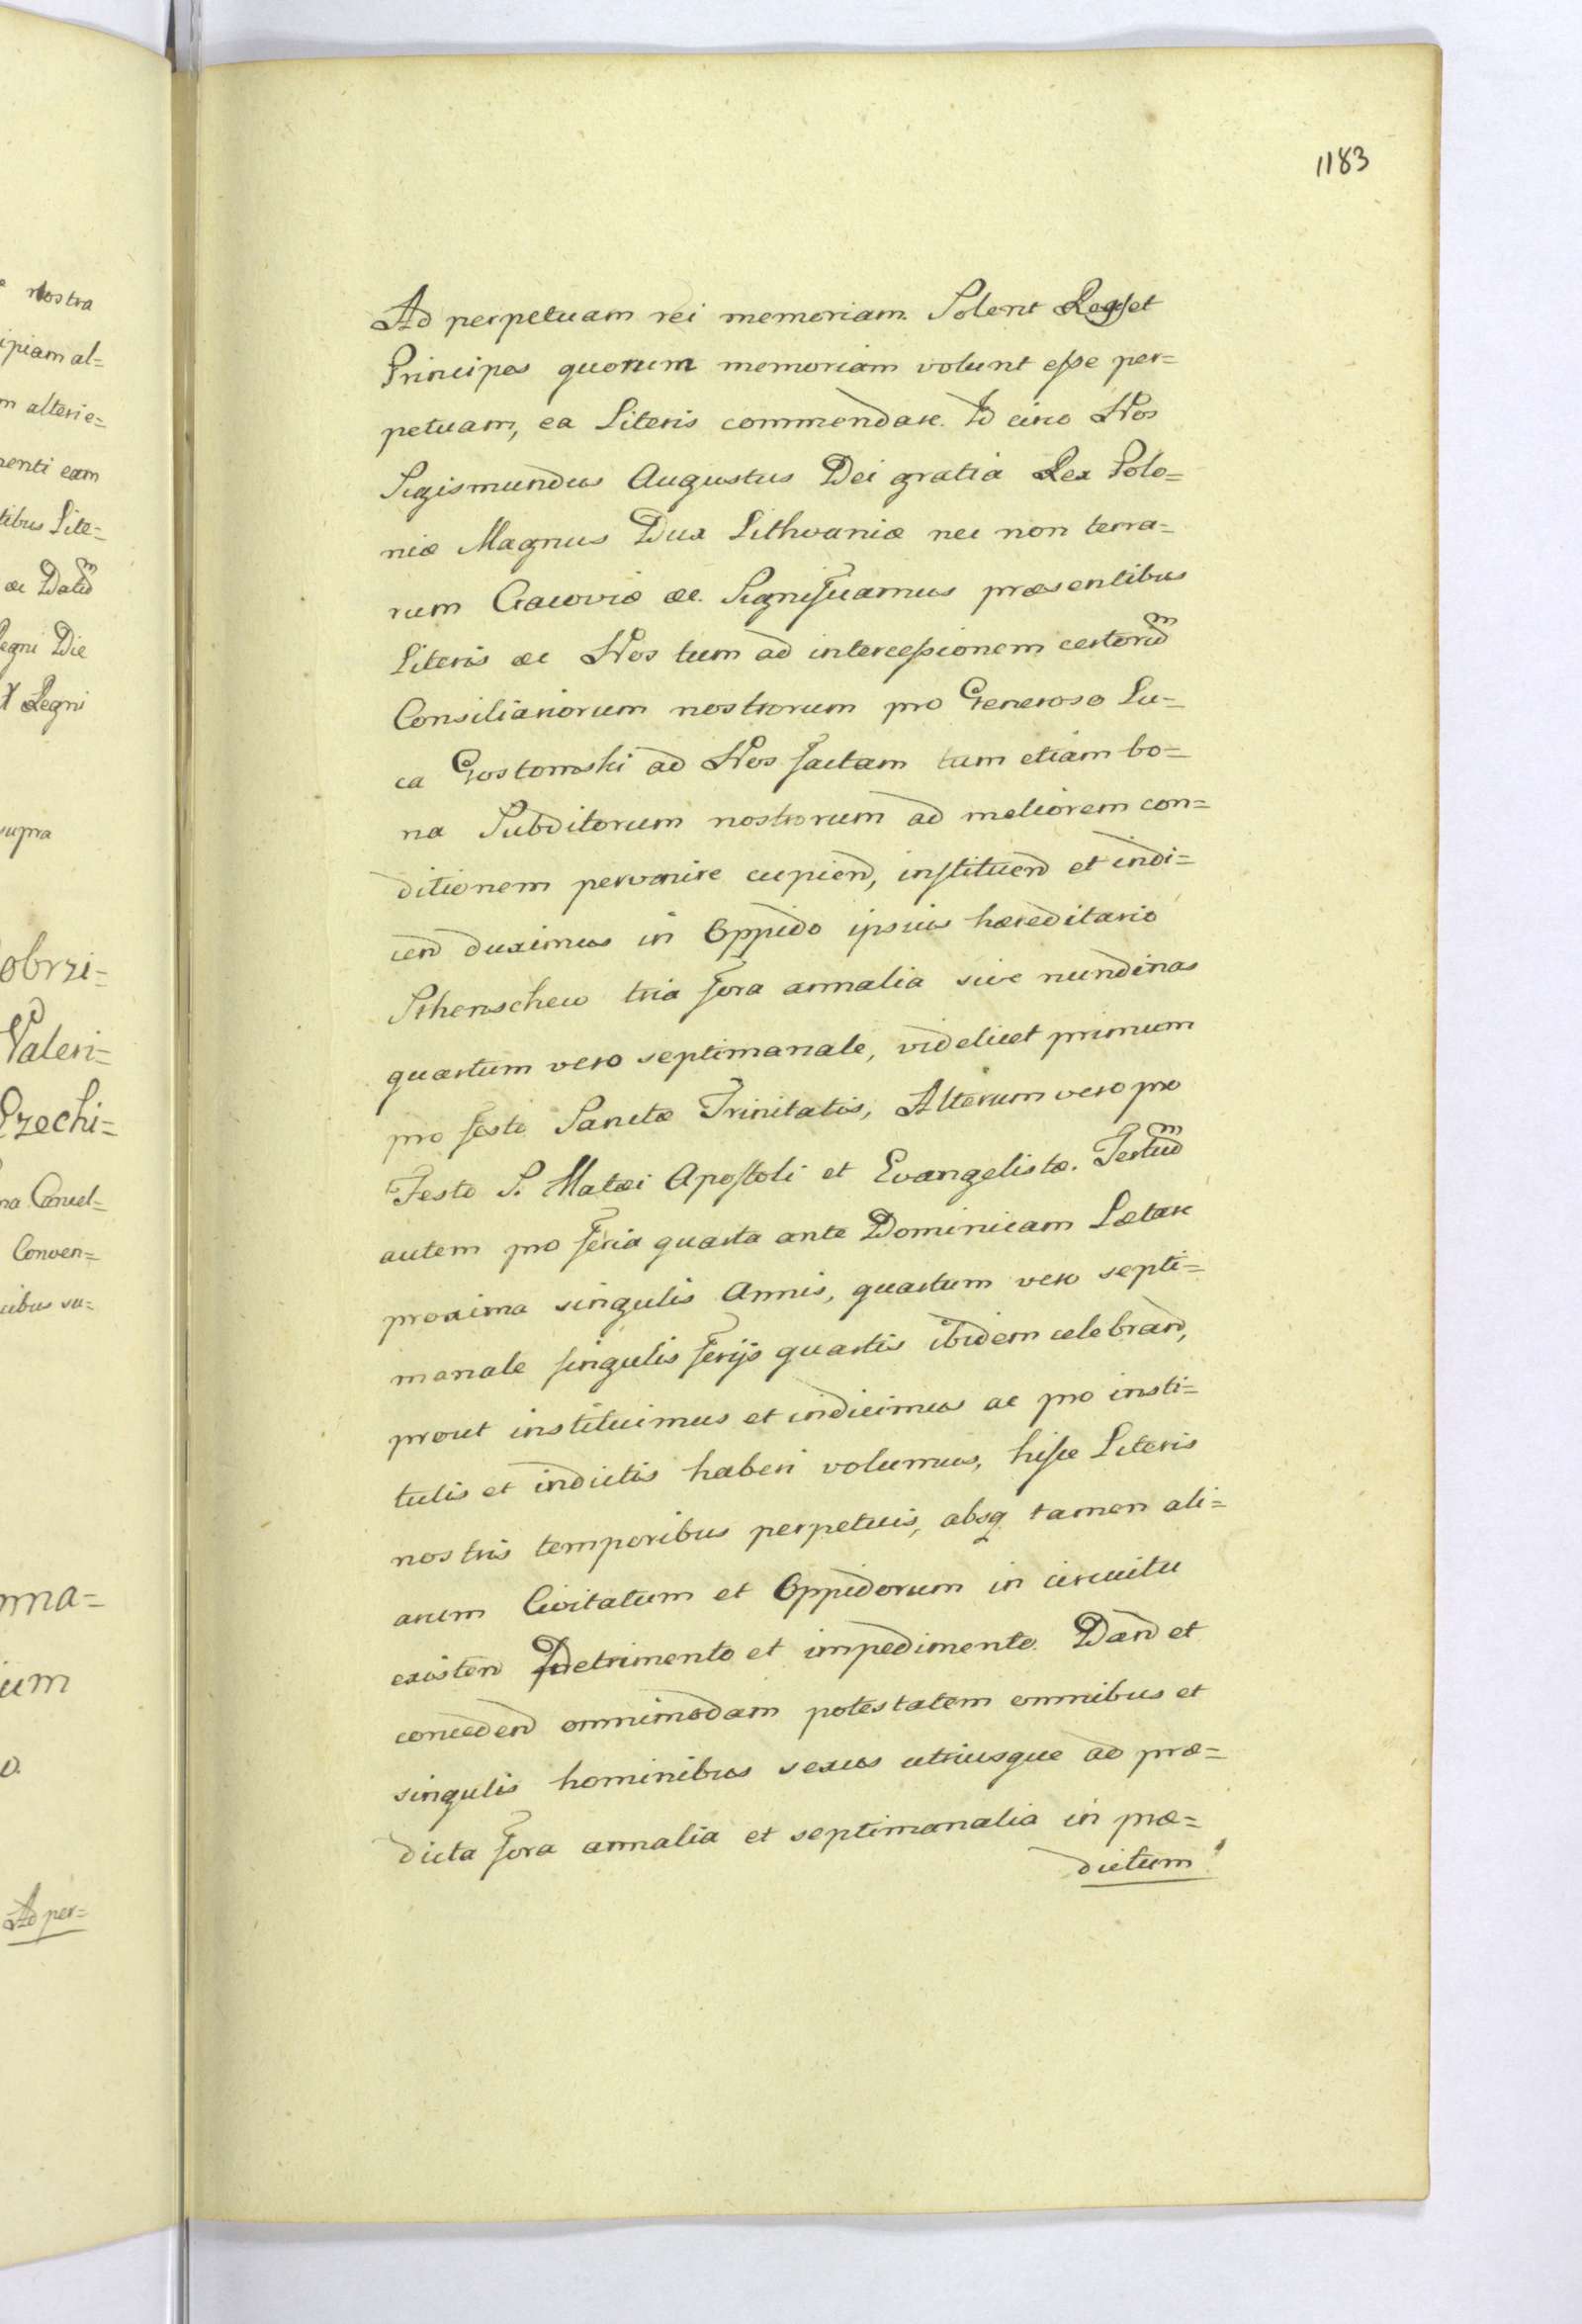 1183
nostra
ipiam al=
m alteri e=
nenti eam
tibus Lite=
ac Datum
Regni Die
X Regni
supra
obrzi=
Valeri=
Erzechi=
na Cancel=
Conven=
nna=
ium
o.
Ad per=
Ad perpetuam rei memoriam. Solent Reges et
Principes quorum memoriam volunt esse per=
petuam, ea Literis commendare. Id circo Nos
Sigismundus Augustus Dei gratia Rex Polo=
niæ Magnus Dux Lithvaniæ nec non terra=
rum Cracoviæ &c. Significamus præsentibus
Literis &c Nos tum ad intercessionem certorum
Consiliariorum nostrorum pro Generoso Lu=
ca Gostomski ad Nos factam tum etiam bo=
na Subditorum nostrorum ad meliorem con=
ditionem pervenire cupien, instituen et indi=
cen duximus in Oppido ipsius hæreditario
Sthenschew tria fora annalia sive nundinas
quartum vero septimanale, videlicet primum
pro festo Sanctæ Trinitatis, Alterum vero pro
Festo S. Matæi Apostoli et Evangelistæ. Tertium
autem pro feria quarta ante Dominicam Lætare
proxima singulis Annis, quartum vero septi=
manale singulis ferijs quartis ibidem celebran,
prout instituimus et indicimus ac pro insti=
tutis et indictis haberi volumus, hisce Literis
nostris temporibus perpetuis, absq tamen ali=
arum Civitatum et Oppidorum in circuitu
existen Detrimento et impedimento. Dan et
conceden omnimodam potestatem omnibus et
singulis hominibus sexus utriusque ad præ=
dicta fora annalia et septimanalia in præ=
dictum